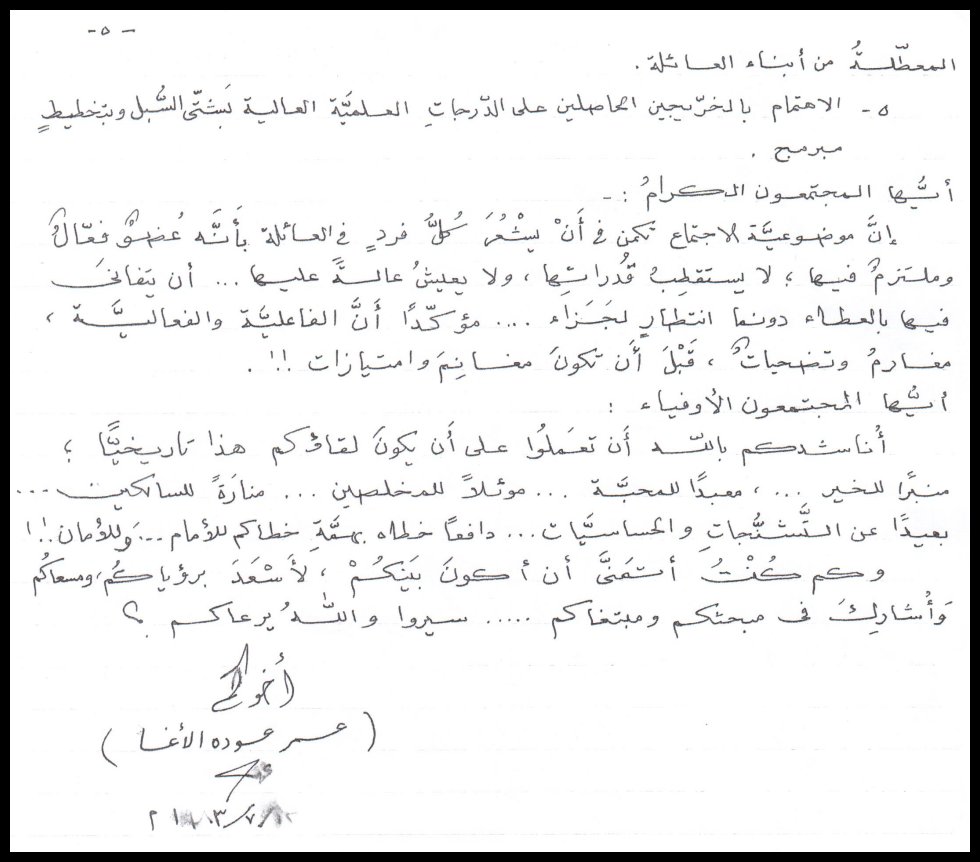 - ٥ -
المعطّلةُ من أبناء العائلة .
٥ - الاهتمام بالخرّيجين الحاصلين على الدّرجاتِ العلميَّة العالية بَشتّى السُّبل وبتخطيطٍ
مبرمج .
أيُّها المجتمعون الكرامُ : -
إنَّ موضوعيَّة الاجتماع تكمن في أَنْ يشْعُرَ كُلُّ فردٍ في العائلة بأَنَّه عُضوٌ فعّالٌ
وملتزمٌ فيها ؛ لا يستقطِبُ قُدراتِها ، ولا يعيشُ عالةً عليها ... أن يتفانَى
فيها بالعطاء دونما انتظارٍ لجَزاء .... مؤكّدًا أَنَّ الفاعليَّة والفعاليَّة ،
مغارمُ وتضحياتٌ ، قَبْلَ أَن تكونَ مغانِمَ وامتيازات !! .
أيُّها المجتمعون الأوفياء :
أُناشدكم باللّه أَن تعملُوا على أَن يكونَ لقاؤكم هذا تاريخيًّا ؛
منبرًا للخير ... ، معبدًا للمحبَّة ... موئلاً للمخلصين ... منارَةً للسالكين ...
بعيدًا عن التَّشنُّجاتِ والحساسيَّات ... دافعًا خطاه بهمَّةِ خطاكم للأمام ... وَللأمان ..!!
وكم كُنْتُ أتمنَّى أن أكونَ بَيْنَكُمْ ، لأَسْعَدَ برؤياكُم ، ومسعاكُم
وَأُشارِكَ في مبحثكم ومبتغاكم ..... سيروا واللّهُ يرعاكم ؟
أخُوكم
( عمر عوده الأغا )